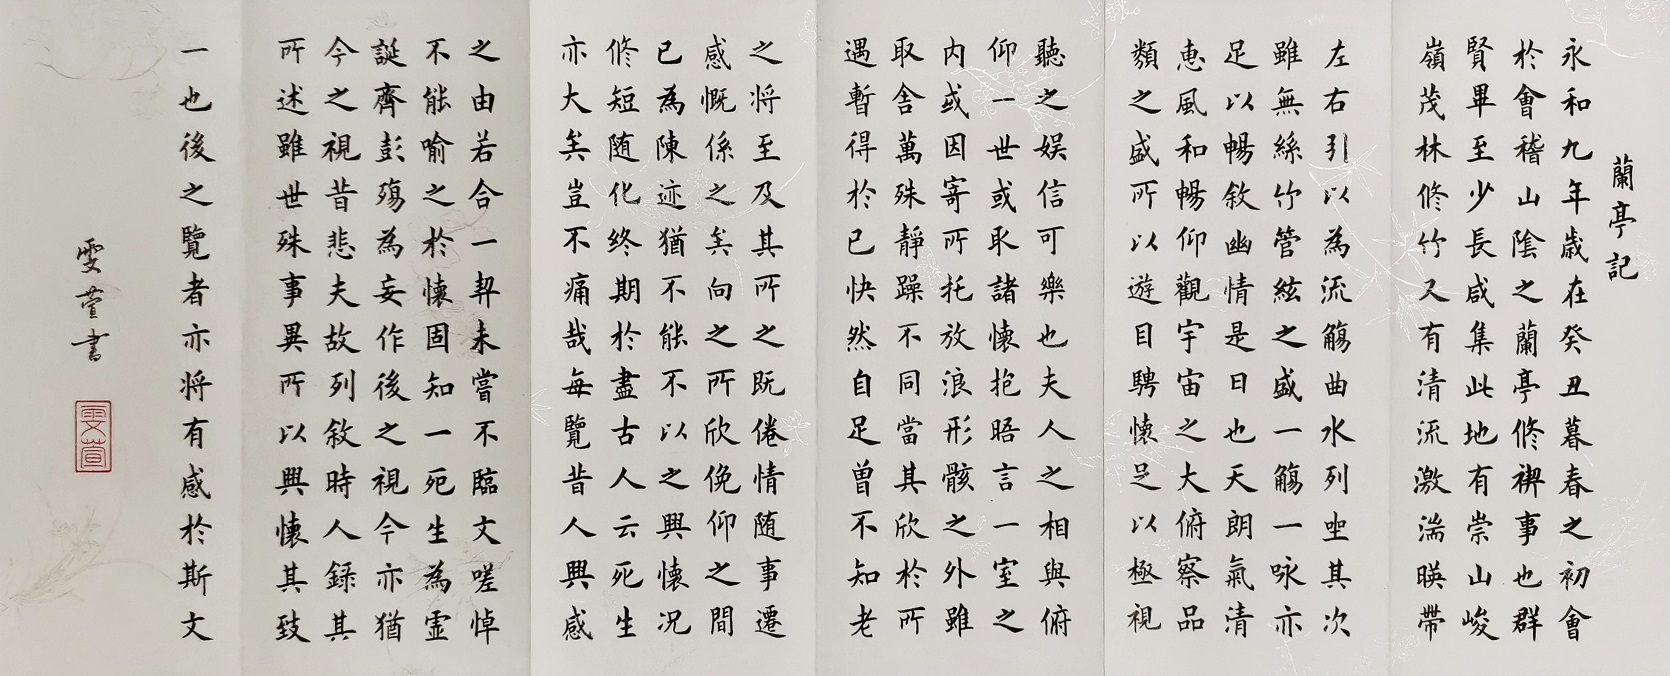 蘭亭記
永和九年歲在癸丑暮春之初會
於會稽山陰之蘭亭修禊事也群
賢畢至少長咸集此地有崇山峻
嶺茂林修竹又有清流激湍暎帶
左右引以為流觴曲水列坐其次
雖無絲竹管絃之盛一觴一咏亦
足以暢敘幽情是日也天朗氣清
惠風和暢仰觀宇宙之大俯察品
類之盛所以遊目騁懷足以極視
聽之娱信可樂也夫人之相與俯
仰一世或取諸懷抱晤言一室之
内或因寄所托放浪形骸之外雖
取舍萬殊靜躁不同當其欣於所
遇暫得於己快然自足曾不知老
之将至及其所之既倦情随事遷
感慨係之矣向之所欣俛仰之間
已為陳迹猶不能不以之興懷况
修短随化终期於盡古人云死生
亦大矣豈不痛哉每覽昔人興感
之由若合一契未嘗不臨文嗟悼
不能喻之於懷固知一死生為虚
誕齊彭殤為妄作後之視今亦猶
今之視昔悲夫故列敘時人錄其
所述雖世殊事異所以興懷其致
一也後之覽者亦将有感於斯文
雯萱書
雯萱